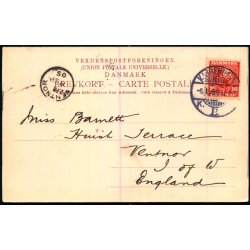 VERDENSPOSTFORENINGEN.
(UNION POSTALE UNIVERSELLE)
DANMARK
BREVKORT – CARTE POSTALE
VENTNOR
05
DANMARK
Miss Barnett
Huish Terrace
Ventnor
I of W
England